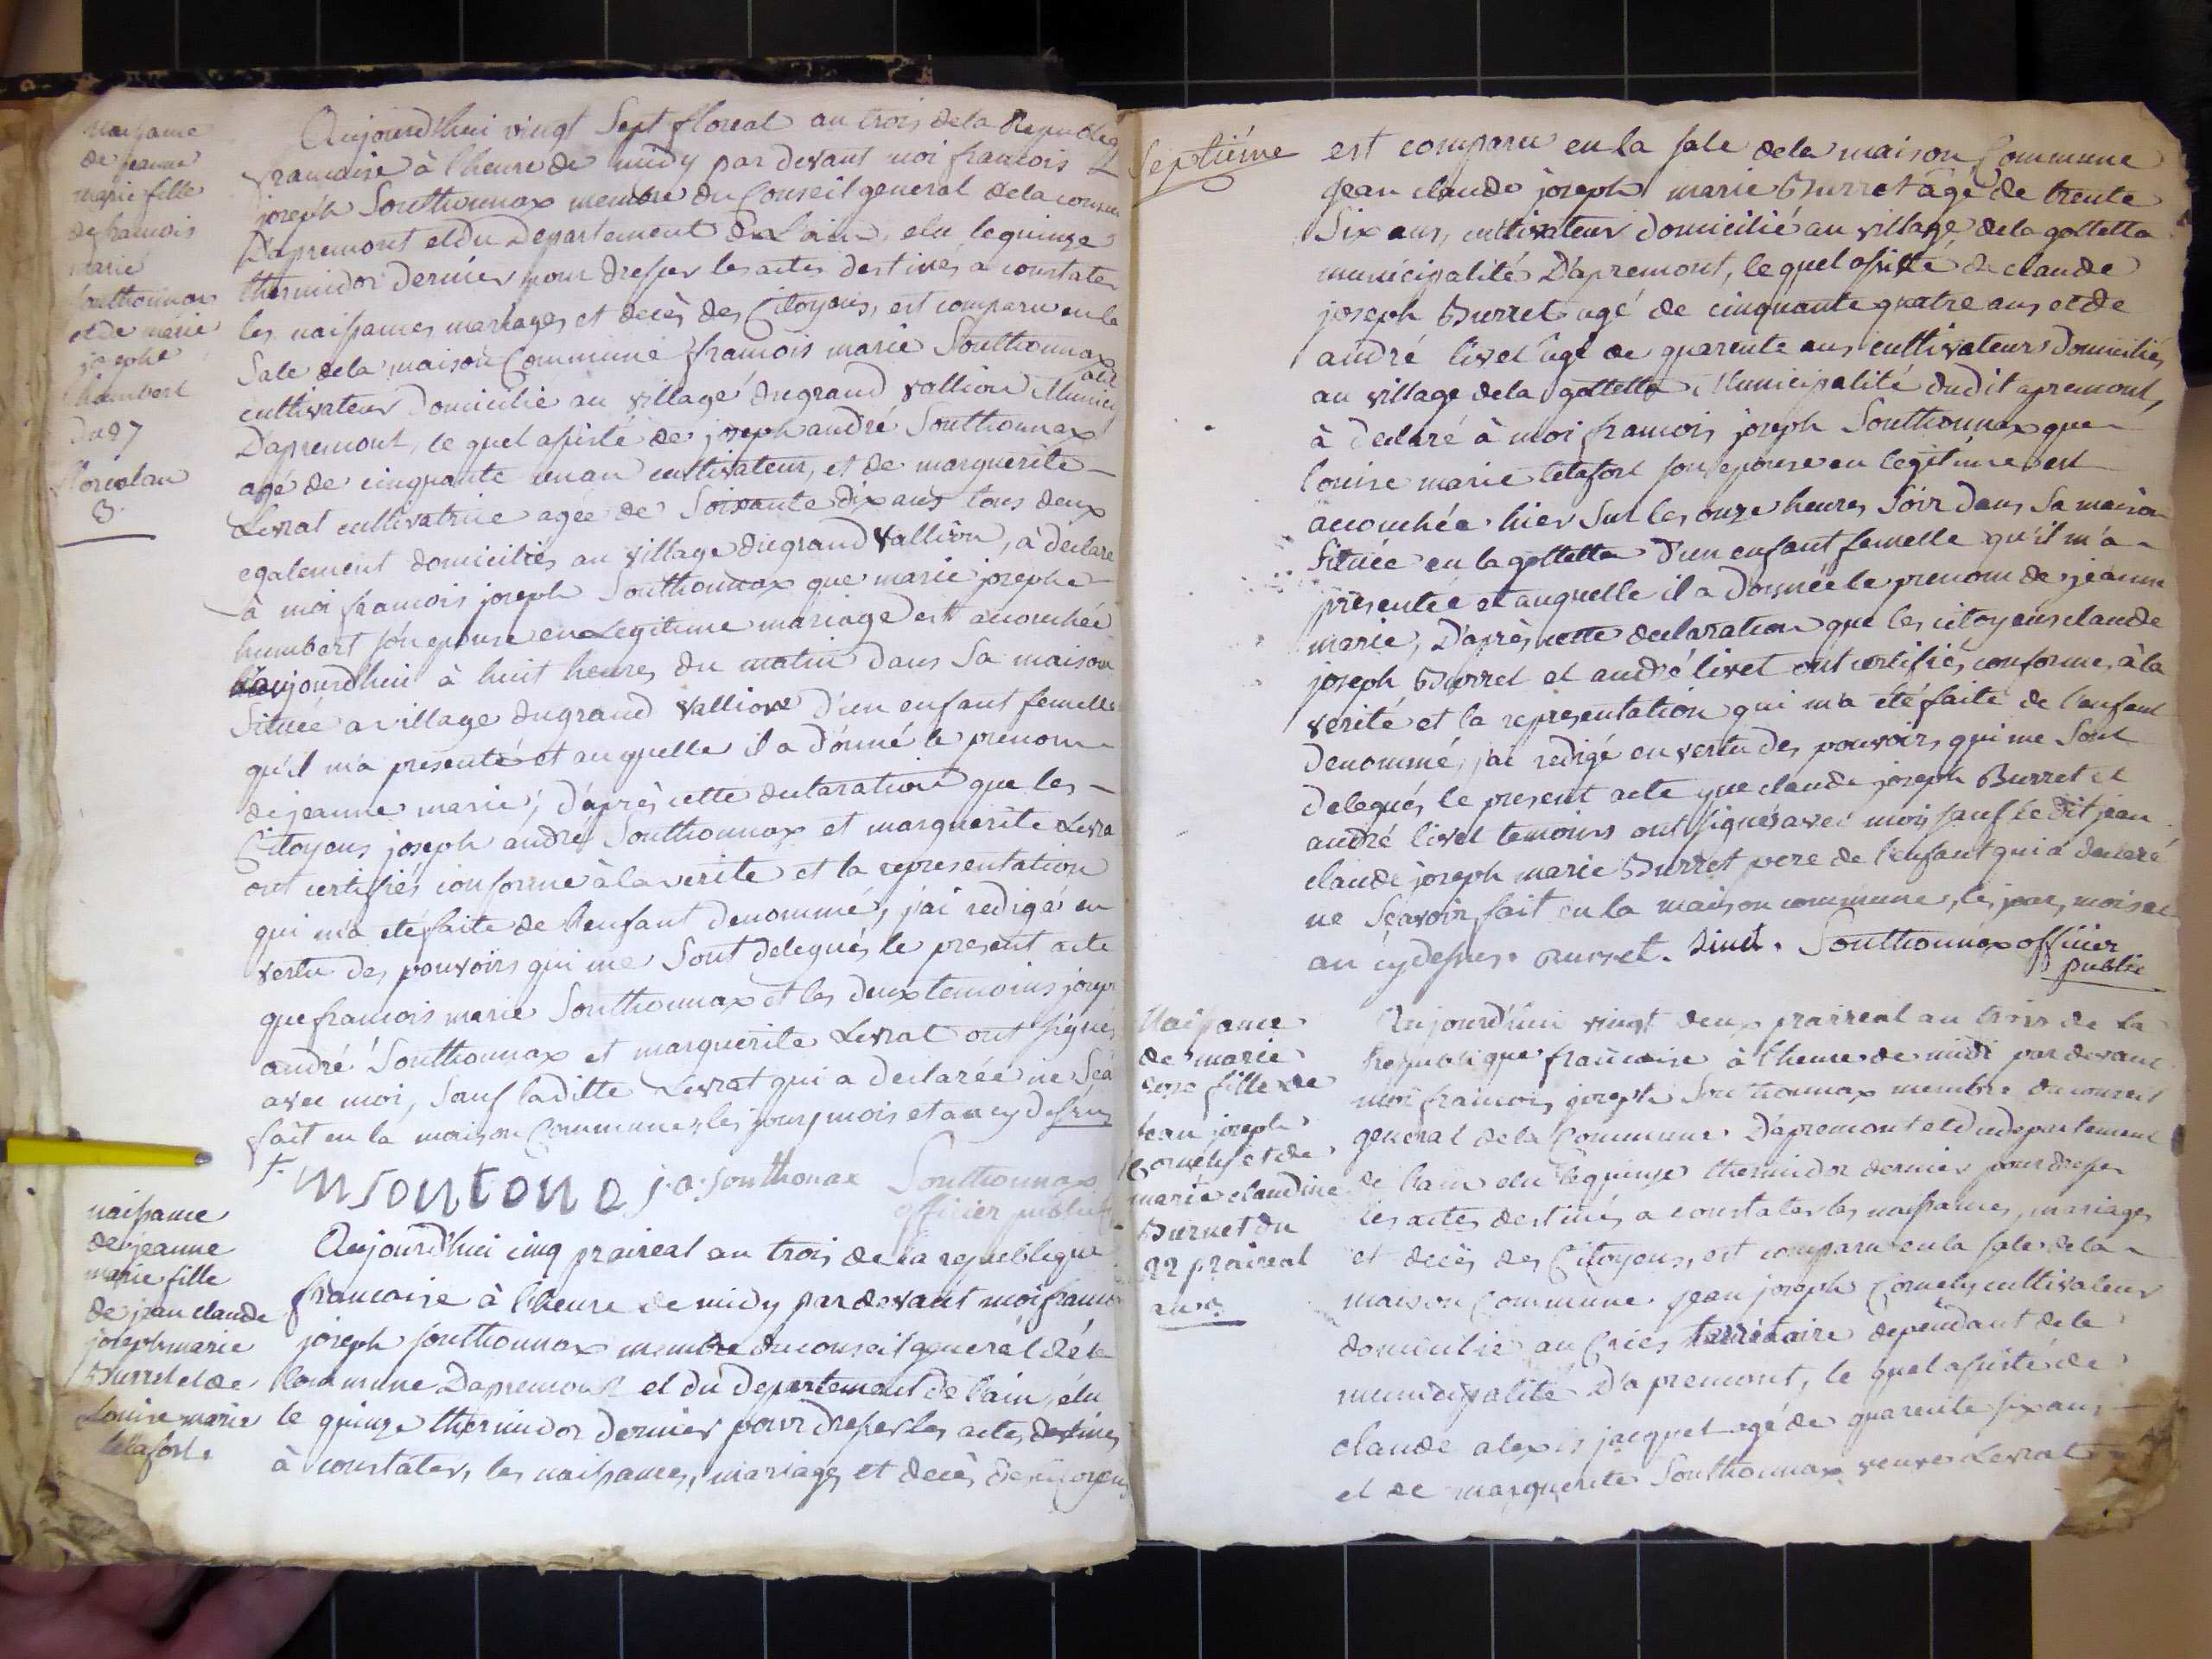 naissance
de jeanne
marie fille
de francois
marie
Southonnax
et de marie
josephe
humbert
Du 27
floreal an
3.
Aujourd'hui vingt Sept floreal an trois de la Republiq
francaise à l'heure de midy par devant moi francois
joseph Southonnax membre du Conseil general de la comun
D'apremont et du Departement De Lain, elu le quinze
thermidor dernier pour dresser les actes destinés a constater
les naissances mariages et decès des Citoyens, est comparu en la
Sale de la maison Commune francois marie Southonnax
cultivateur Domicilié au village du grand vallion Munici
D'apremont, le quel assisté de joseph andré Southonnax
agé de cinquante un an cultivateur, et de marguerite
Levrat cultivatrice agée de Soixante dix ans tous deux
egalement domiciliés au village du grand vallion, a declaré
à moi francois joseph Southonnax que marie josephe
humbert son epouse en Legitime mariage est acouchée
aujourdhui à huit heures du matin dans Sa maison
Située a village du grand vallion d'un enfant femelle
qu'il m'a presenté et auquelle il a donné le prenom
de jeanne marie; d'après cette declaration que les
Citoyens joseph andré Southonnax et marguerite Levra
ont certifiés conforme à la verite et la representation
qui m'a eté faite de l'enfant denommé, j'ai redigé en
vertu des pouvoirs qui me Sont delegués le present acte
que francois marie Southonnax et les deux temoins joseph
andré Southonnax et marguerite Levrat ont signés
avec moi, Sauf laditte Levrat qui a declarée ne Sca
fait en la maison Commune, les jour, mois et an cy dessus
f. msontona j. a. Southonax Southonnax
officier public
naissance
de jeanne
marie fille
de jean claude
joseph marie
Burret et de
Louise marie
letafort.
Aujourd'hui cinq praireal an trois de la republique
francaise à l'heure de midy par devant moi franco
joseph southonnax membre du conseil general de la
Commune Dapremont et du departement de l'ain, élu
le quinze thermidor dernier pour dresser les actes destinés
à constater, les naissances, mariages et decès des citoyens
Septième
est comparu en la sale de la maison Commune
Jean claude joseph marie Burret agé de trente
Six ans, cultivateur domicilié au village de la gottetta
municipalité D'apremont, le quel assisté de claude
joseph Burret agé de cinquante quatre ans et de
andré livet âgé de quarente ans cultivateurs Domiciliés
au village de la gottetta Municipalité dudit apremont,
à declaré à moi francois joseph Southonnax que
louise marie letafort son epouse en legitime est
acouchée hier sur les onze heures Soir dans Sa maison
Située en la gottetta D'un enfant femelle qu'il m'a
presentée et auquelle il a Donnée le prenom de jeanne
marie, D'après cette declaration que les citoyens claude
joseph Burret et andré livet ont certifiés conforme à la
verité et la representation qui m'a eté faite de l'enfant
denommé, j'ai redigé en vertu des pouvoirs qui me Sont
delegués le present acte que claude joseph Burret et
andré livet temoins ont signés avec moi sauf le dit jean
claude joseph marie Burret pere de l'enfant qui a declaré
ne Scavoir, fait en la maison commune, les jour, mois et
an cy dessus. Burret. Livet. Southonnax officier
public
Naissance
de marie
rose fille de
jean joseph
Cornely et de
marie claudine
Burnet du
22 praireal
an 3
Aujourd'hui vingt deux praireal an trois de la
Republique francaise à l'heure de midi par devant
moi francois joseph Southonnax membre du conseil
general de la Commune D'apremont et du departement
de l'ain elu le quinze thermidor dernier pour dresser
les actes destinés a constater les naissances, mariages
et decès des Citoyens, est comparu en la sale de la
maison Commune jean joseph Cornely cultivateur
domicilié au Cries territoire dependant de la
municipalité D'apremont, le quel assisté de
claude alexis jacquet agé de quarente six ans
et de marguerite Southonnax veuve Levrat